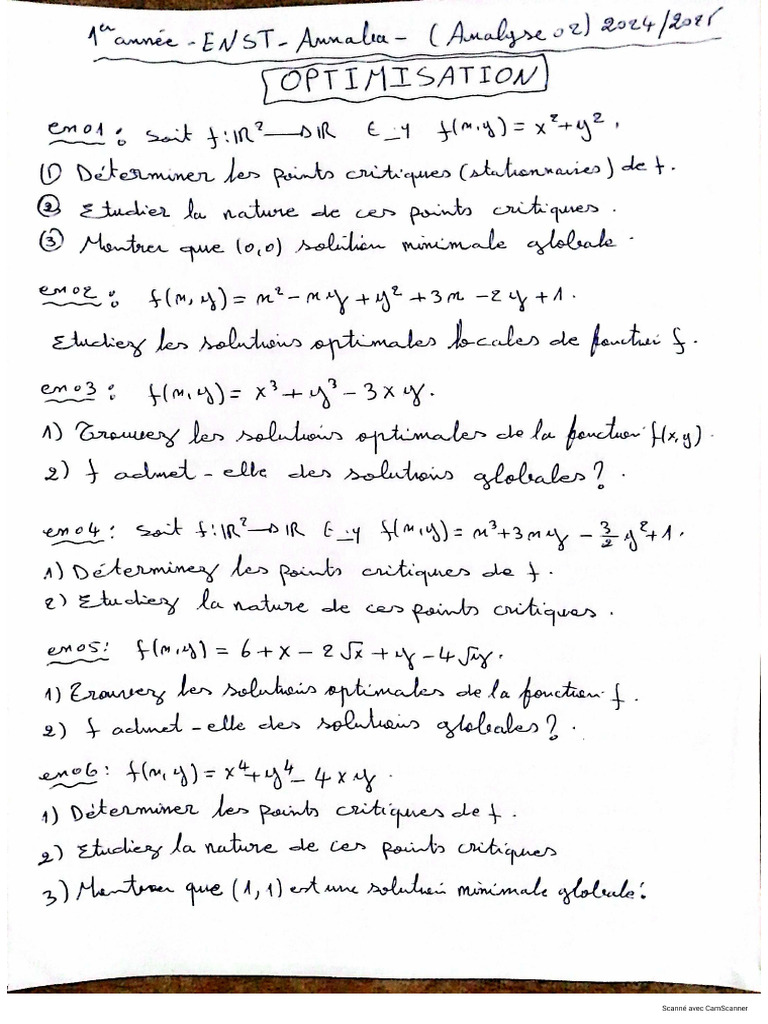 1ère année - ENST - Annaba - (Analyse 02) 2024/2025
OPTIMISATION
exo 1 : soit f : IR² → IR t.q f(x,y) = x² + y².
① Déterminer les points critiques (stationnaires) de f.
② Etudier la nature de ces points critiques.
③ Montrer que (0,0) solution minimale globale.
exo 2 : f(x,y) = x² - xy + y² + 3x - 2y + 1.
Etudiez les solutions optimales locales de fonction f.
exo 3 : f(x,y) = x³ + y³ - 3xy.
1) Trouvez les solutions optimales de la fonction f(x,y).
2) f admet-elle des solutions globales ?
exo 4 : soit f : IR² → IR t.q f(x,y) = x³ + 3xy - 3/2 y² + 1.
1) Déterminez les points critiques de f.
2) Etudiez la nature de ces points critiques.
exo 5 : f(x,y) = 6 + x - 2√x + y - 4√y.
1) Trouvez les solutions optimales de la fonction f.
2) f admet-elle des solutions globales ?
exo 6 : f(x,y) = x⁴ + y⁴ - 4xy.
1) Déterminer les points critiques de f.
2) Etudiez la nature de ces points critiques
3) Montrer que (1,1) est une solution minimale globale.
Scanné avec CamScanner